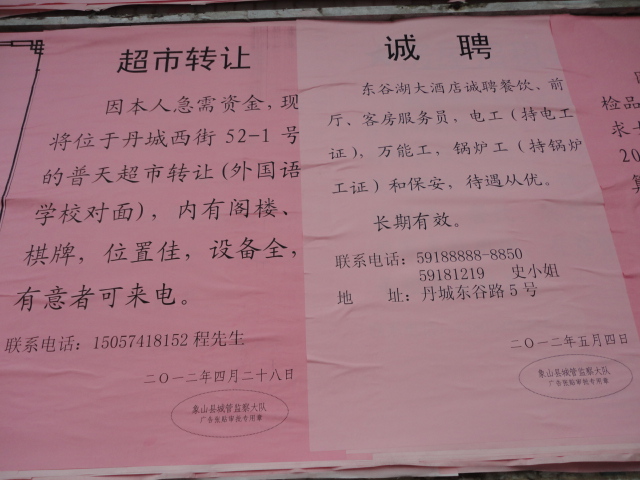 超市转让
因本人急需资金，现
将位于丹城西街 52-1 号
的普天超市转让(外国语
学校对面)，内有阁楼、
棋牌，位置佳，设备全，
有意者可来电。
联系电话：15057418152 程先生
二〇一二年四月二十八日
象山县城管监察大队
广告张贴审批专用章
诚 聘
东谷湖大酒店诚聘餐饮、前
厅、客房服务员，电工（持电工
证），万能工，锅炉工（持锅炉
工证）和保安，待遇从优。
长期有效。
联系电话：59188888-8850
59181219 史小姐
地 址：丹城东谷路 5 号
二〇一二年五月四日
象山县城管监察大队
广告张贴审批专用章
检品
20